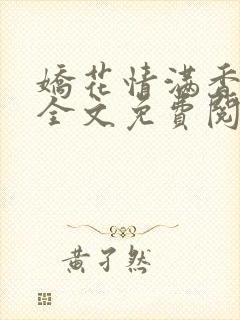 嬌花情满香
全文免費閱
黃孑然